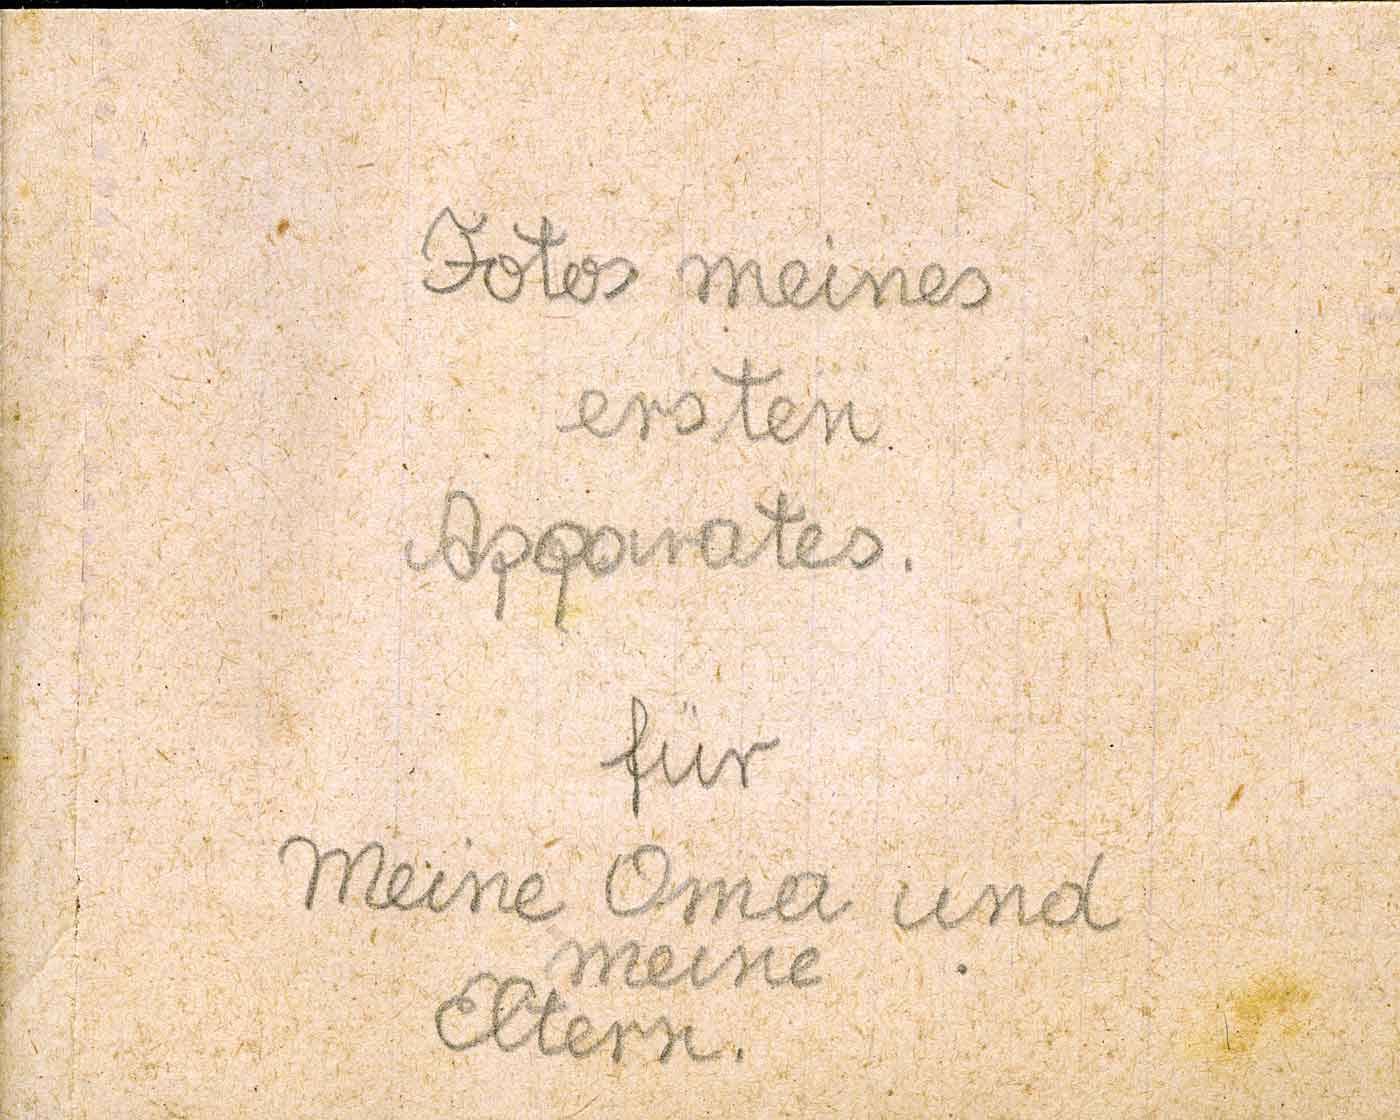 Fotos meines
ersten
Apparates.
für
Meine Oma und
meine
Eltern.